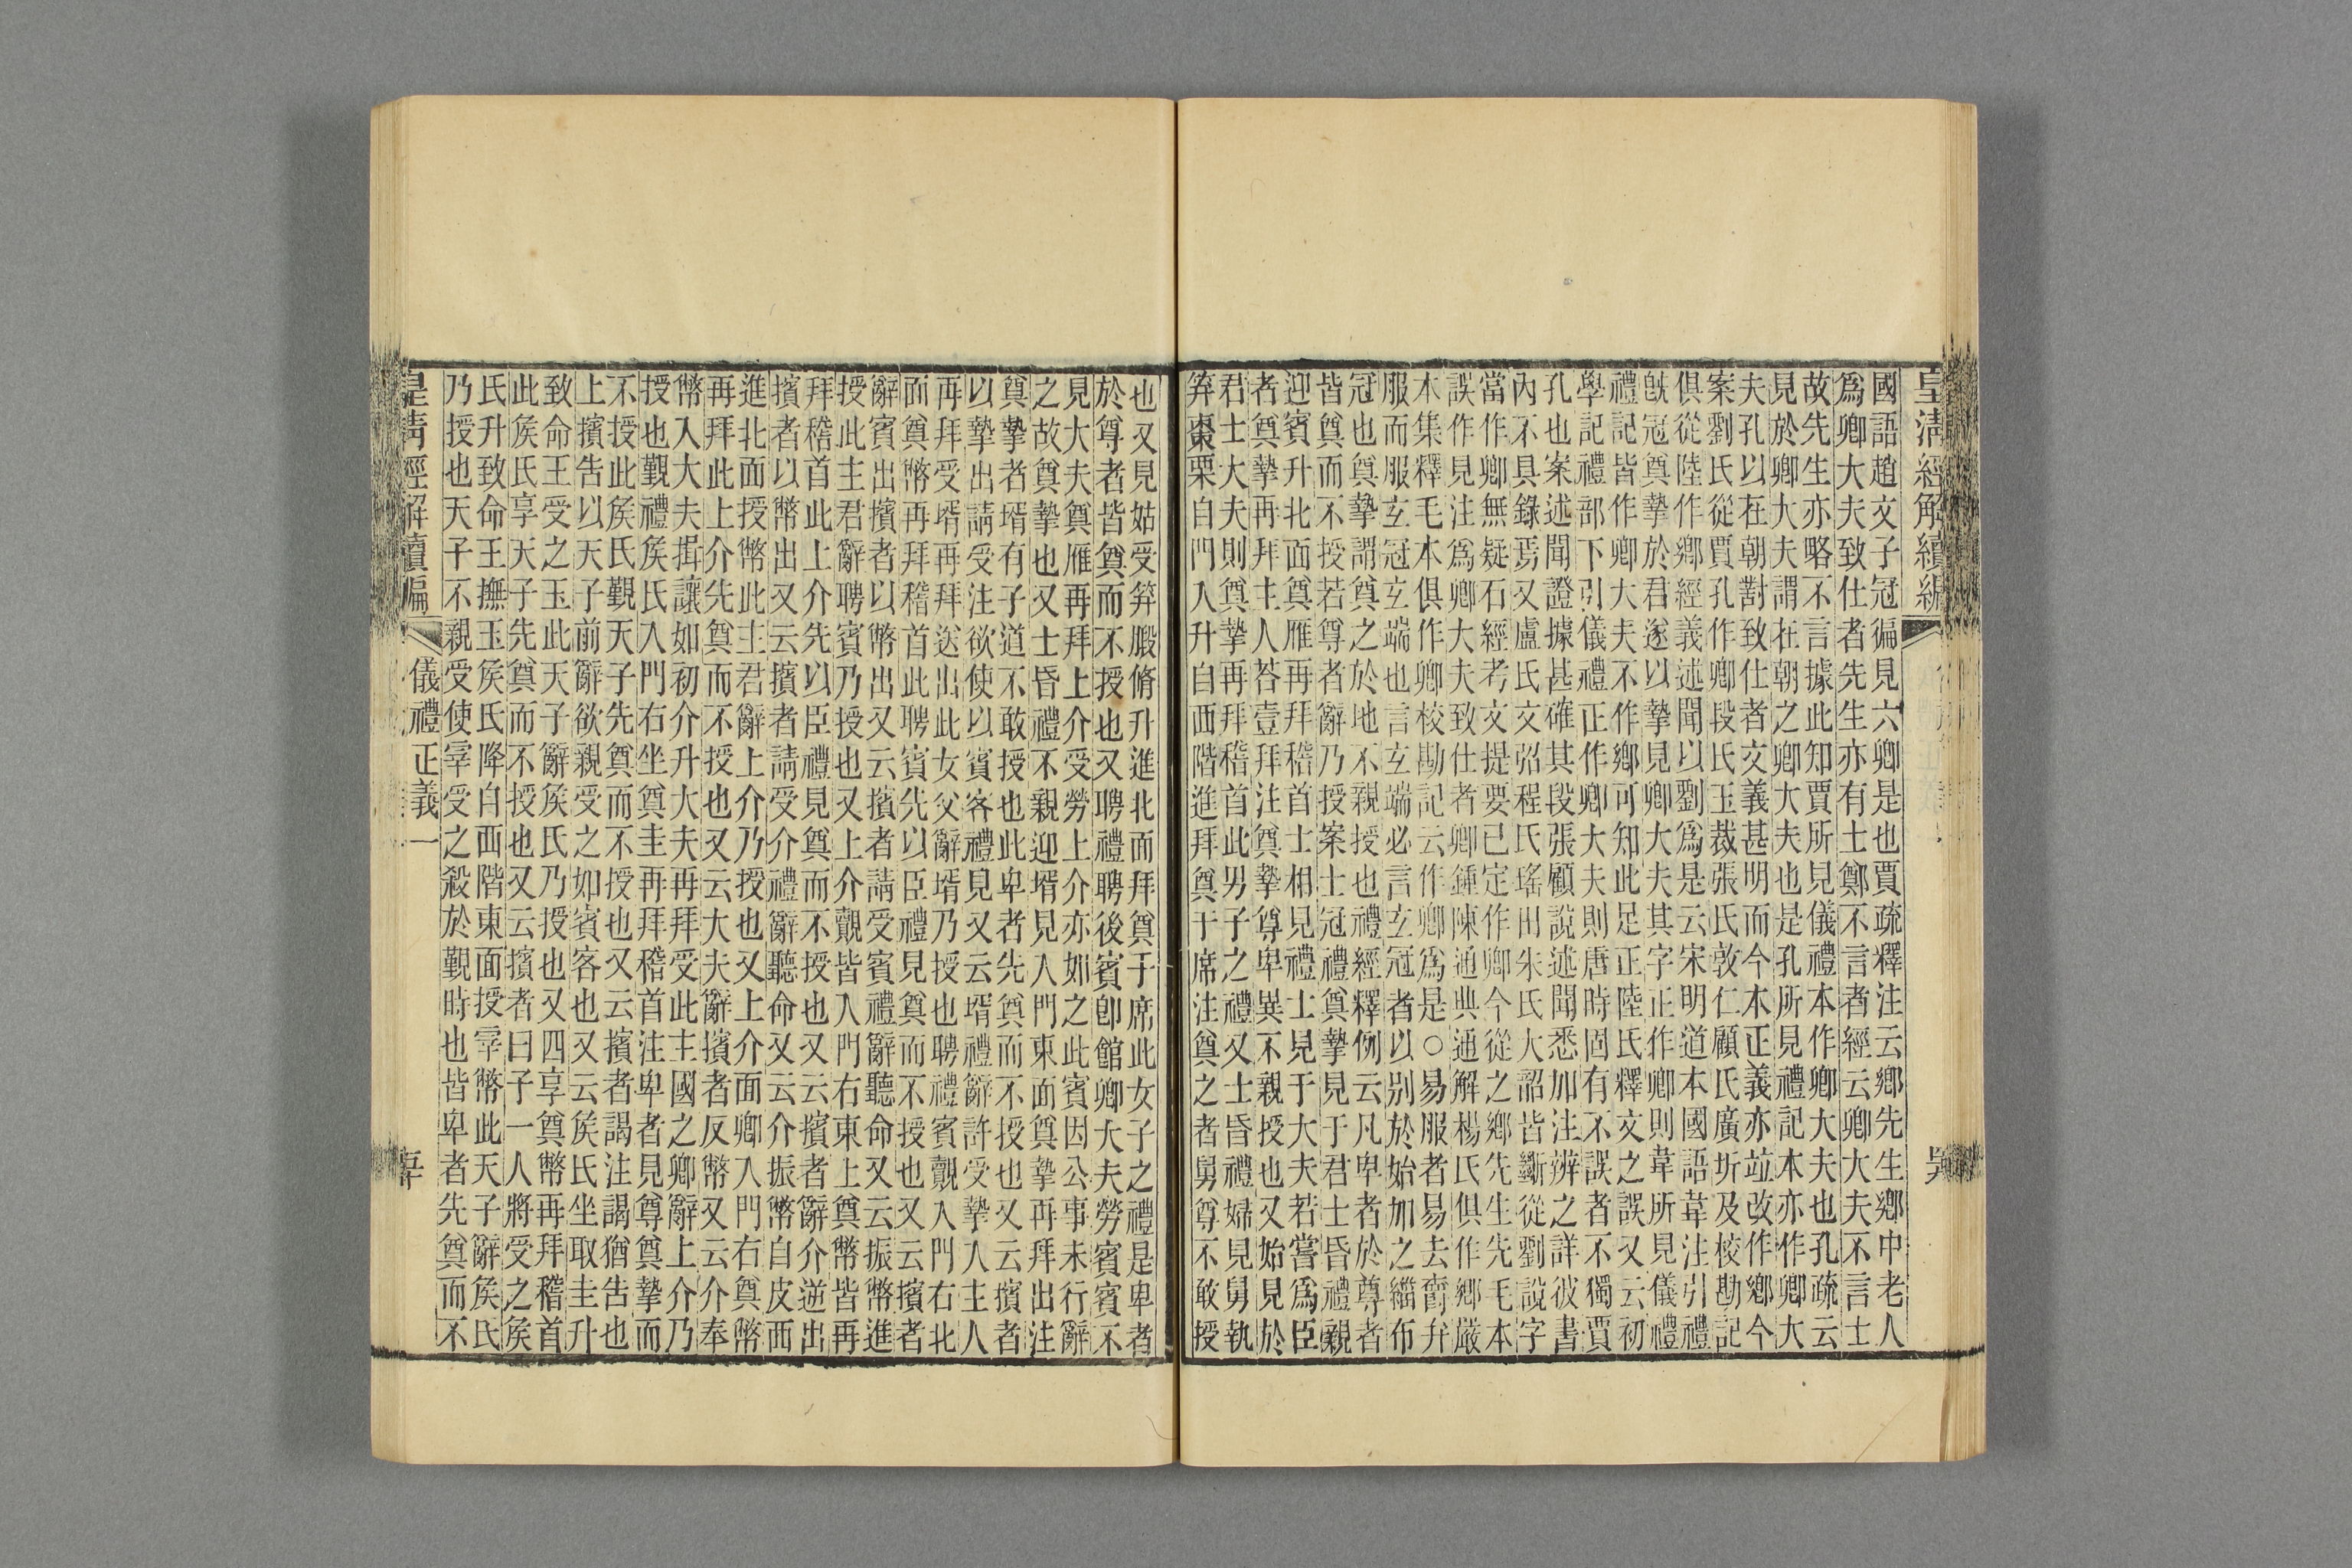 皇淸經解續編
國語趙文子冠徧見六卿是也賈疏釋注云鄉先生鄉中老人
爲卿大夫致仕者先生亦有士鄭不言者經云卿大夫不言士
故先生亦略不言據此知賈所見儀禮本作卿大夫也孔疏云
見於卿大夫謂在朝之卿大夫也是孔所見禮記本亦作卿大
夫孔以在朝對致仕者文義甚明而今本正義亦竝改作鄉今
案劉氏從賈孔作卿段氏玉裁張氏敦仁顧氏廣圻及校勘記
俱從陸作鄉經義述聞以劉爲是云宋明道本國語韋注引禮
旣冠奠摯於君遂以摯見卿大夫其字正作卿則韋所見儀禮
禮記皆作卿大夫不作鄉可知此足正陸氏釋文之誤又云初
學記禮部下引儀禮正作卿大夫則唐時固有不誤者不獨賈
孔也案述聞證據甚確其段張顧說述聞悉加注辨之詳彼書
內不具錄焉又盧氏文弨程氏瑤田朱氏大韶皆斷從劉說字
當作卿無疑石經考文提要已定作卿今從之鄉先生先毛本
誤作見注爲卿大夫致仕者卿鍾陳通典通解楊氏俱作鄉嚴
本集釋毛本俱作卿校勘記云作卿爲是○易服者易去爵弁
服而服玄冠玄端也言玄端必言玄冠者以别於始加之緇布
冠也奠摯謂奠之於地不親授也禮經釋例云凡卑者於尊者
皆奠而不授若尊者辭乃授案士冠禮奠摯見于君士昏禮親
迎賓升北面奠雁再拜稽首士相見禮士見于大夫若嘗爲臣
者奠摯再拜主人荅壹拜注奠摯尊卑異不親授也又始見於
君士大夫則奠摯再拜稽首此男子之禮又士昏禮婦見舅執
笲棗栗自門入升自西階進拜奠于席注奠之者舅尊不敢授
也又見姑受笲腶脩升進北面拜奠于席此女子之禮是卑者
於尊者皆奠而不授也又聘禮聘後賓卽館卿大夫勞賓賓不
見大夫奠雁再拜上介受勞上介亦如之此賓因公事未行辭
之故奠摯也又士昏禮不親迎壻見入門東面奠摯再拜出注
奠摯者壻有子道不敢授也此卑者先奠而不授也又云擯者
以摯出請受注欲使以賓客禮見又云壻禮辭許受摯入主人
再拜受壻再拜送出此女父辭壻乃授也聘禮賓覿入門右北
面奠幣再拜稽首此聘賓先以臣禮見奠而不授也又云擯者
辭賓出擯者以幣出又云擯者請受賓禮辭聽命又云振幣進
授此主君辭聘賓乃授也又上介覿皆入門右東上奠幣皆再
拜稽首此上介先以臣禮見奠而不授也又云擯者辭介逆出
擯者以幣出又云擯者請受介禮辭聽命又云介振幣自皮西
進北面授幣此主君辭上介乃授也又上介面卿入門右奠幣
再拜此上介先奠而不授也又云大夫辭擯者反幣又云介奉
幣入大夫揖讓如初介升大夫再拜受此主國之卿辭上介乃
授也覲禮矦氏入門右坐奠圭再拜稽首注卑者見尊奠摯而
不授此矦氏覲天子先奠而不授也又云擯者謁注謁猶告也
上擯告以天子前辭欲親受之如賓客也又云矦氏坐取圭升
致命王受之玉此天子辭矦氏乃授也又四享奠幣再拜稽首
此矦氏享天子先奠而不授也又云擯者曰予一人將受之矦
氏升致命王撫玉矦氏降自西階東面授宰幣此天子辭矦氏
乃授也天子不親受使宰受之殺於覲時也皆卑者先奠而不
皇淸經解續編
儀禮正義一